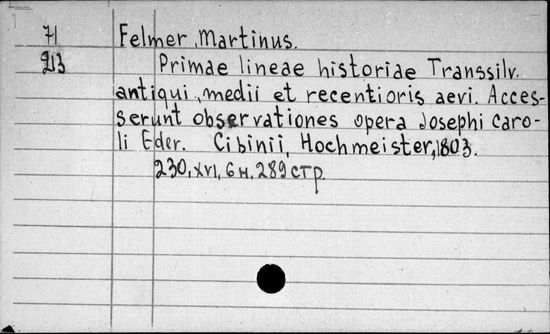 71 Felmer, Martinus.
213 Primae lineae historiae Transsilv.
antiqui, medii et recentioris aevi. Acces-
serunt observationes opera Josephi Caro-
li Eder. Cibinii, Hochmeister, 1803.
230, XVI, 6 н, 289 стр.